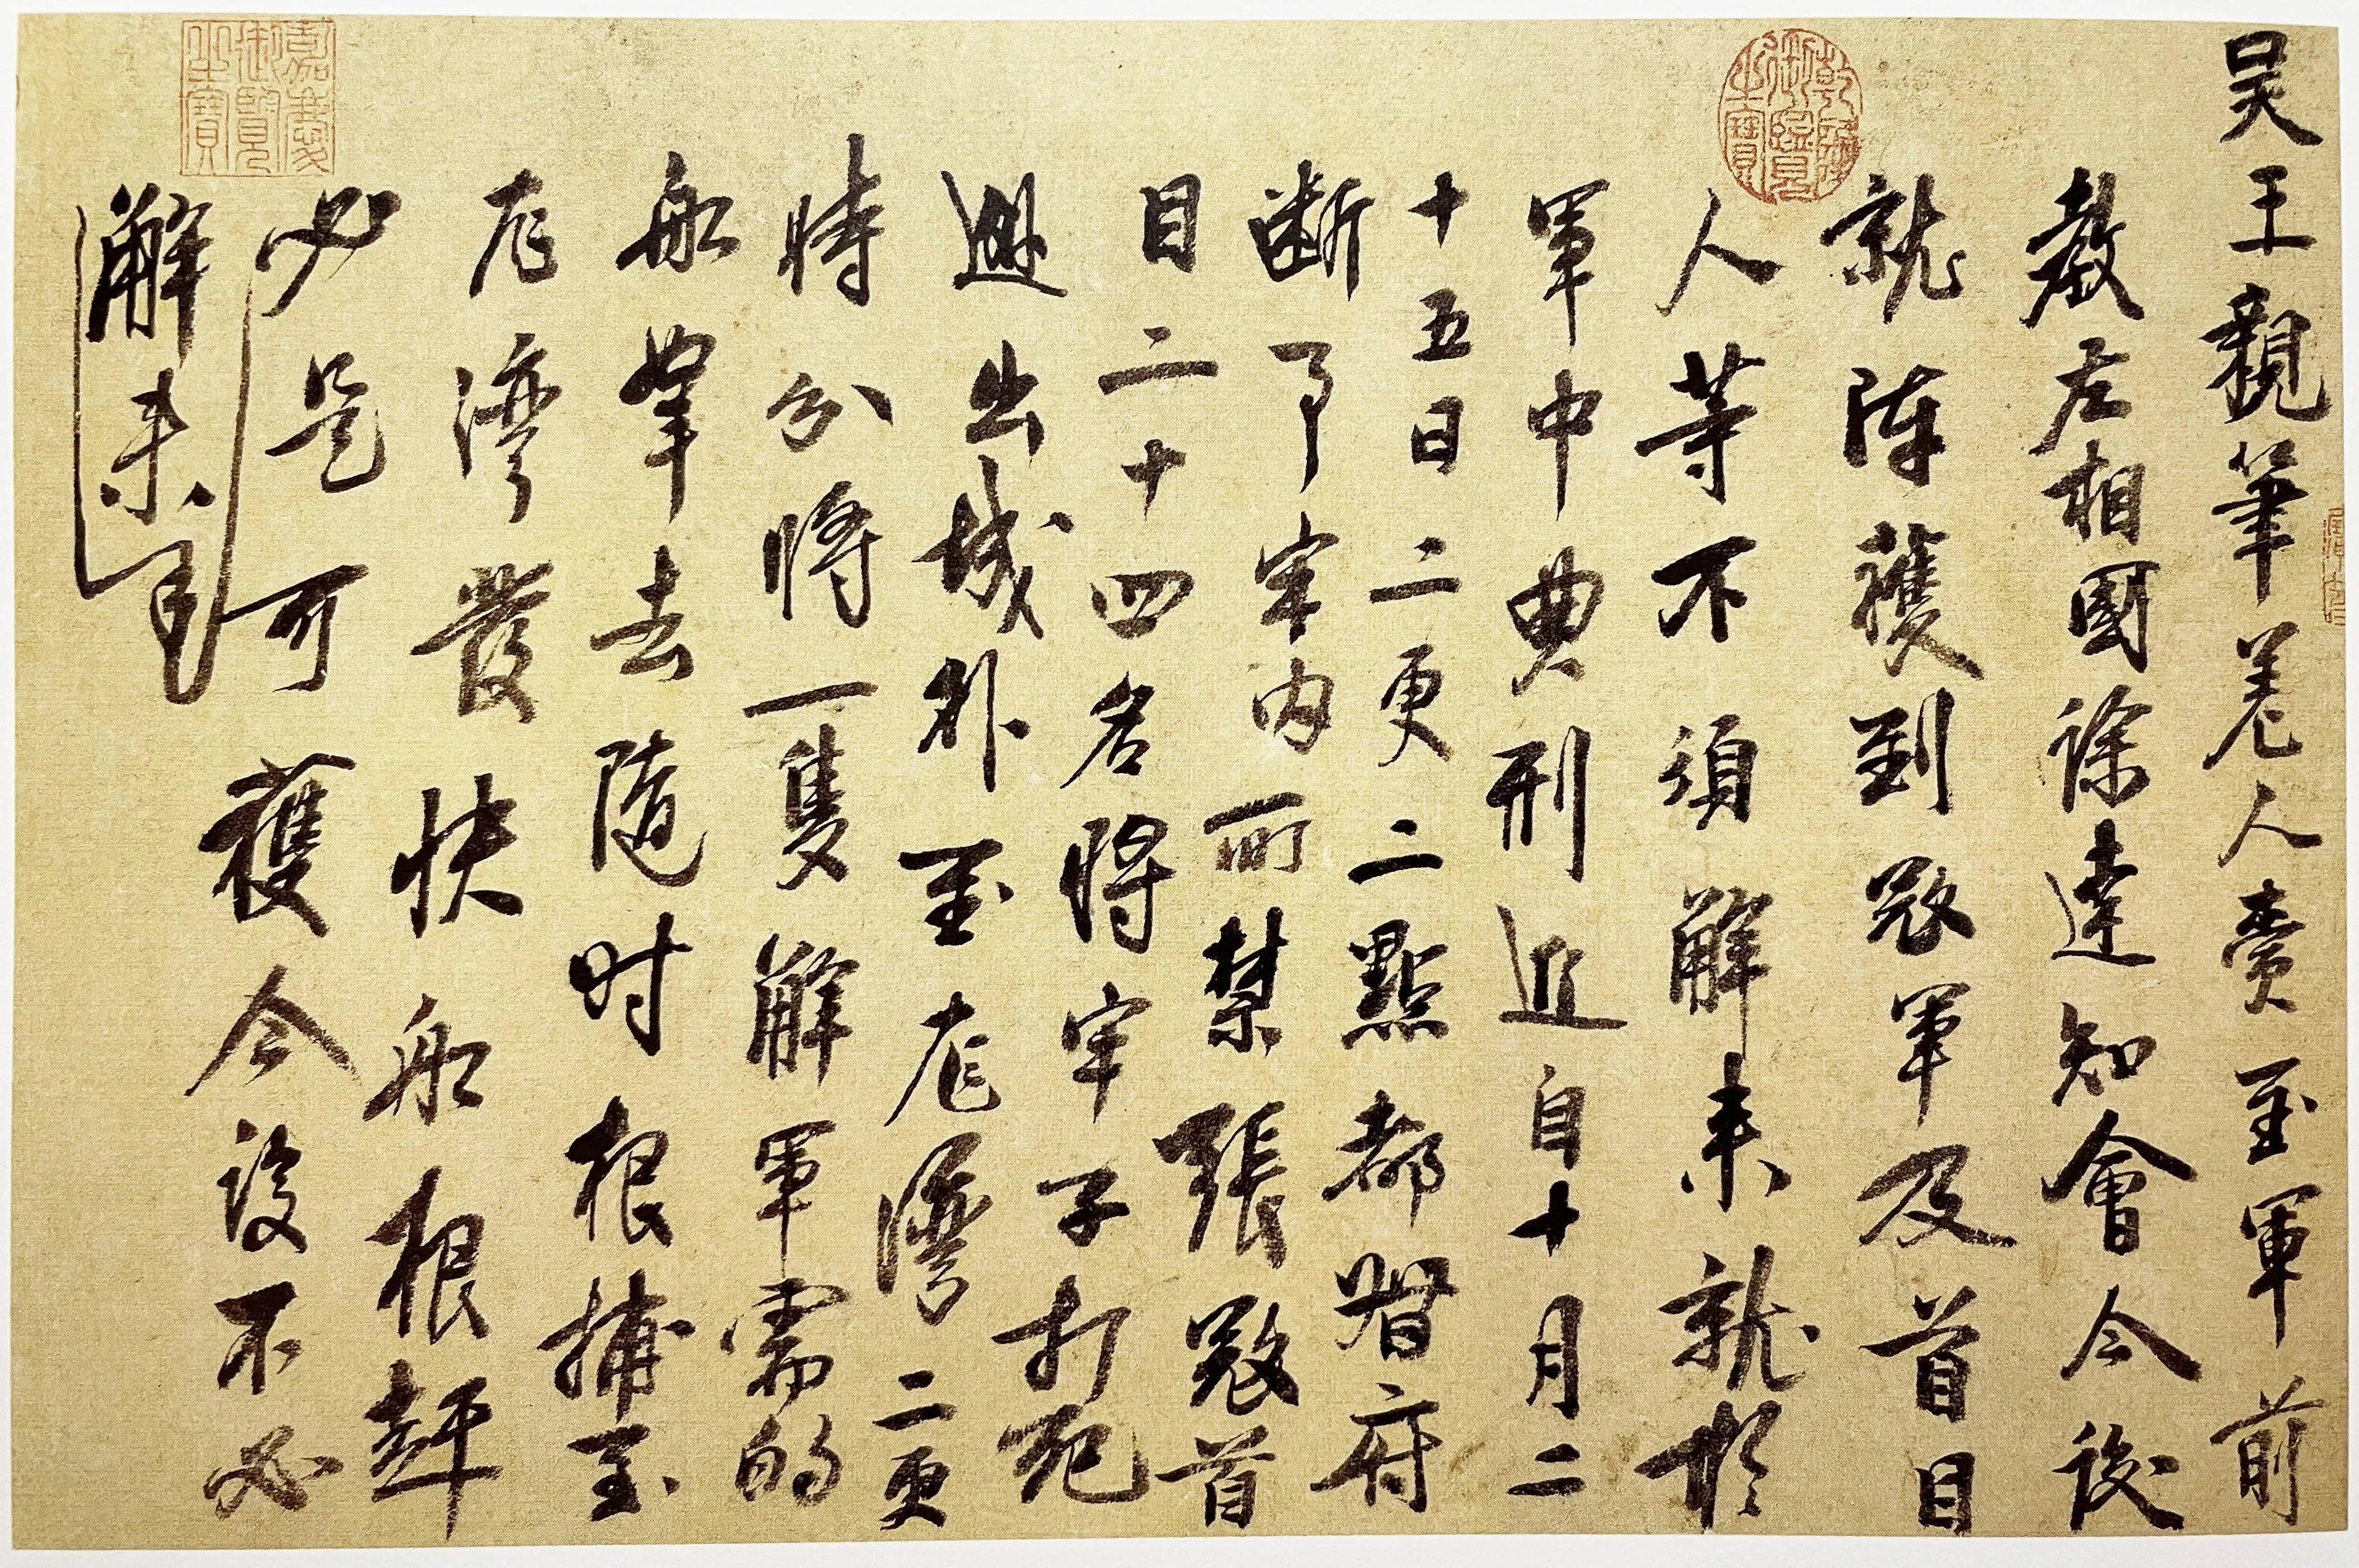 吴王親筆差人賫至軍前
教左相國徐達知會今後
就陣獲到寇軍及首目
人等不須解来就於
軍中典刑近自十月二
十五日二更二點都督府
断了牢内所禁張寇首
目二十四名將牢子打死
出城外至龙湾二更
時分將一隻解軍需的
船拏去隨时根捕至
龙湾發快船根趕
必是可獲今後不必
解来
乾隆御覽之寶
嘉慶御覽之寶